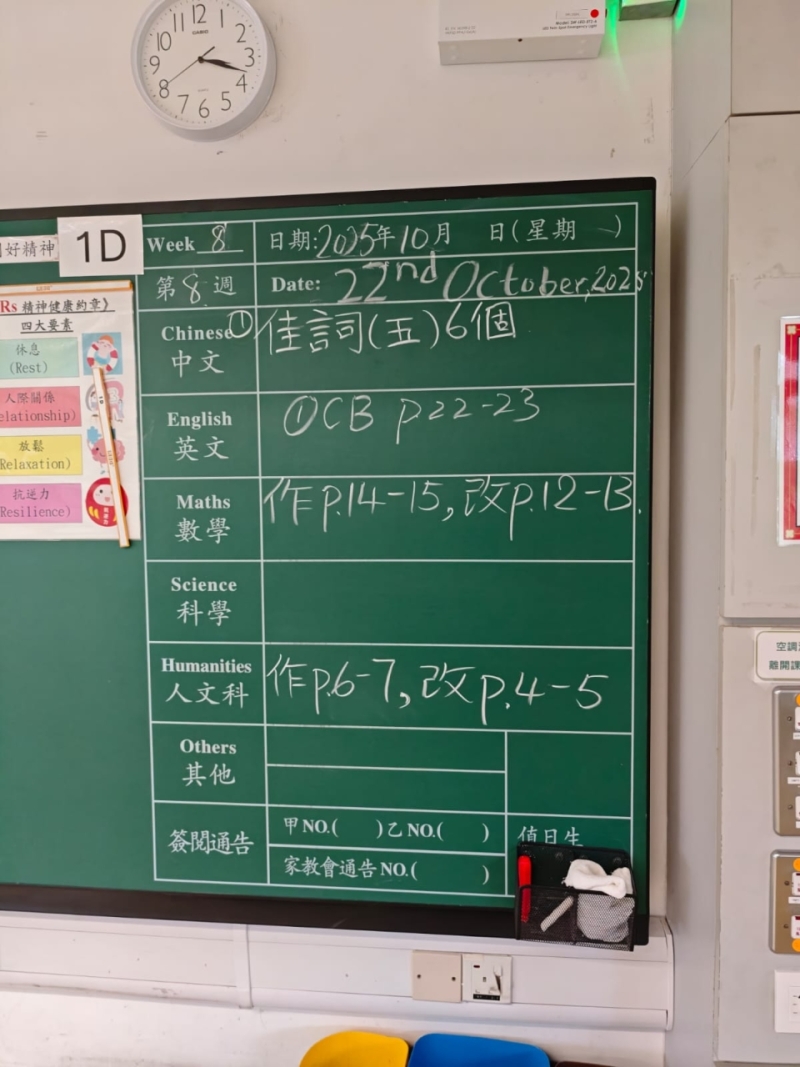 12
1
2
3
4
5
6
7
8
9
10
11
CASIO
好精神
1D
Rs 精神健康約章》
四大要素
休息
(Rest)
人際關係
elationship)
放鬆
Relaxation)
抗逆力
Resilience)
Week 8
日期:2025年10月 日(星期 )
第8週
Date: 22nd October, 2025
Chinese
中文
①佳詞(五)6個
English
英文
①CB p22-23
Maths
數學
作p.14-15,改p.12-13.
Science
科學
Humanities
人文科
作p.6-7,改p.4-5
Others
其他
簽閱通告
甲NO.( )乙NO.( )
值日生
家教會通告NO.( )
空調
離開課